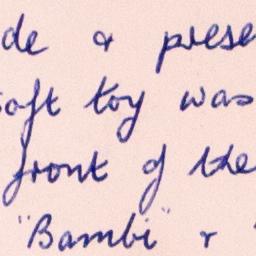 de & prese
soft toy was
front of the
"Bambi" &